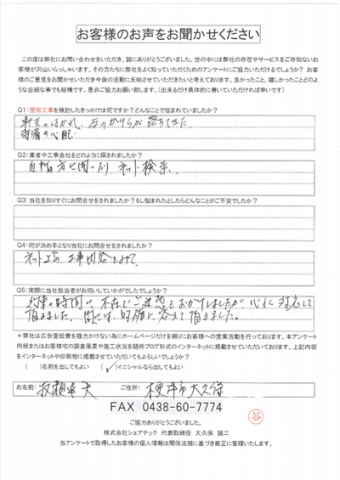 お客様のお声をお聞かせください
この度は弊社にお問い合わせをいただき、誠にありがとうございました。世の中には弊社の存在やサービスをご存知ないお
客様が沢山いらっしゃいます。その方たちに弊社をよく知っていただくためのアンケートにご協力いただけるでしょうか?お客
様のご意見をお聞かせいただき今後の活動に反映させていただきたいと考えております。良かったこと、嬉しかったことどのよ
うな些細な事でも結構です、是非ご協力お願い致します。(出来るだけ具体的に書いていただければ幸いです)
Q1:屋根工事を検討したきっかけは何ですか?どんなことで悩まれていましたか?
軒天のはがれ、瓦のかけらが落ちてきた。
雨漏の心配
Q2:業者や工事会社をどのように探されましたか?
ネット検索
Q3:当社を知りすぐにお問合せをされましたか?もし悩まれたとしたらどんなことがご不安でしたか?
Q4:何が決め手となり当社にお問合せをされましたか?
ネット上の工事内容をみて
Q5:実際に当社担当者がお伺いしていかがでしたでしょうか?
時間に不在としご迷惑をおかけしましたが 対応して
頂きました。 答えて頂きました。
*弊社は広告宣伝費を極力かけない為にホームページだけを頼りにお客様への営業活動を行っております。本アンケート
用紙またはお客様宅の調査風景や施工状況を随時ブログ形式でインターネットに掲載させていただいております。上記内容
をインターネットや印刷物に掲載させていただいてもよろしいでしょうか?
( )名前を出してもよい (✓)イニシャルなら出してもよい
お名前: ご住所: 木更津市大久保
FAX 0438-60-7774
ご協力ありがとうございました。
株式会社シェアテック 代表取締役 大久保 誠二
当アンケートで取得したお客様の個人情報は関係法規に基づき厳正に管理いたします。